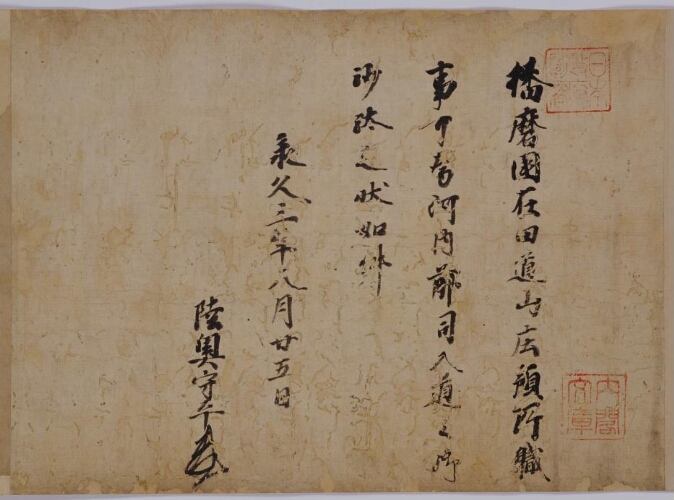 播磨国在田道山庄預所職
事可為河内郡司入道之
沙汰之状如件
承久三年八月廿五日
陸奥守平
内閣
文庫
日本
政府
圖書